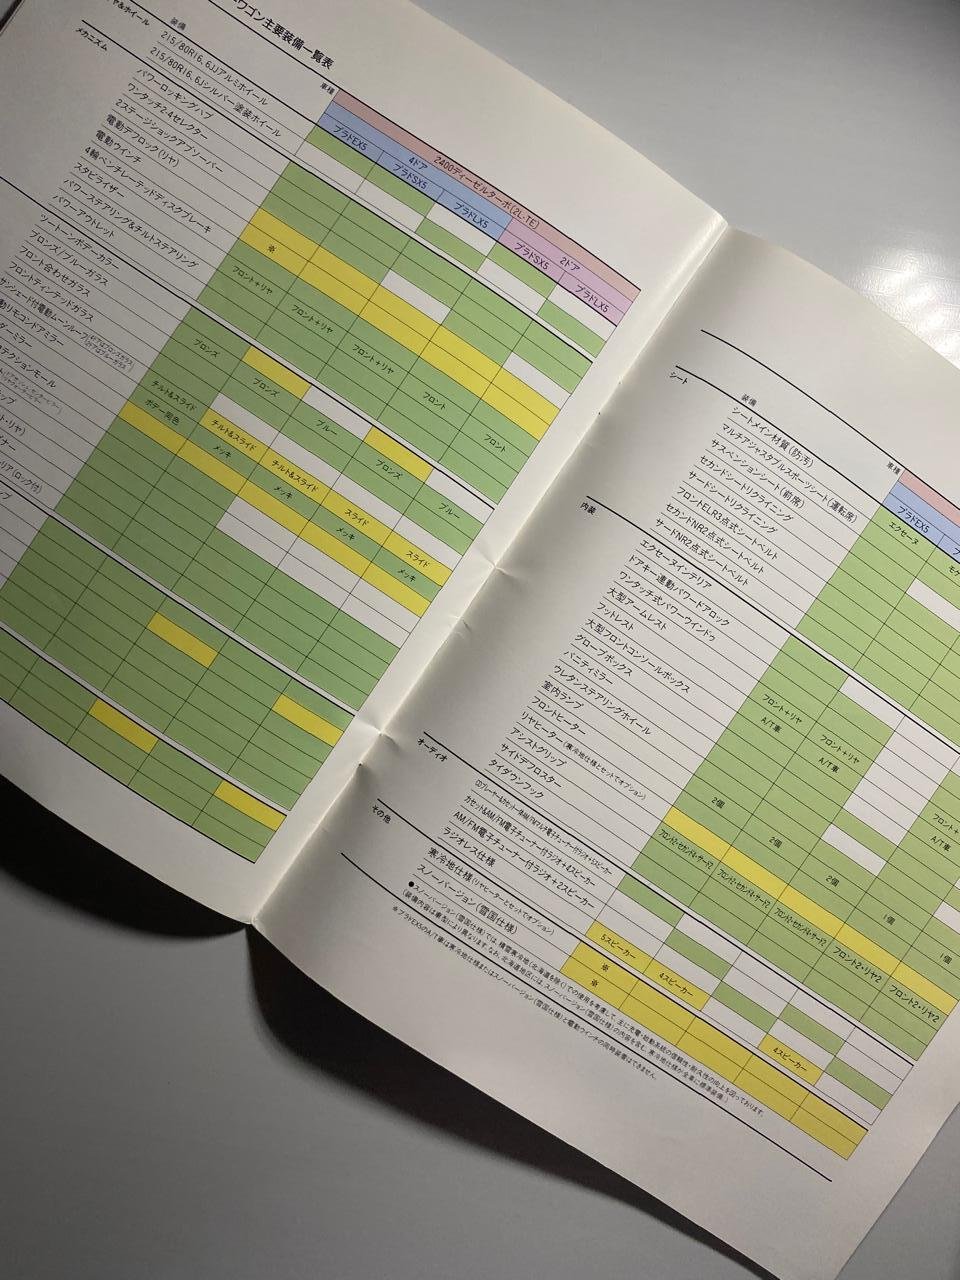 ワゴン主要装備一覧表
装備
車種
2400ディーゼルターボ(2L-TE)
4ドア
2ドア
プラドEX5
プラドSX5
プラドLX5
プラドSX5
プラドLX5
215/80R16、6JJアルミホイール
215/80R16、6Jシルバー塗装ホイール
メカニズム
パワーロッキングハブ
ワンタッチ2-4セレクター
2ステージショックアブソーバー
電動デフロック(リヤ)
電動ウインチ
※
4輪ベンチレーテッドディスクブレーキ
スタビライザー
フロント+リヤ
フロント+リヤ
フロント+リヤ
フロント
フロント
パワーステアリング&チルトステアリング
パワーアウトレット
ツートーンボデーカラー
ブロンズ/ブルーガラス
ブロンズ
ブロンズ
ブルー
ブロンズ
ブルー
フロント合わせガラス
フロントティンテッドガラス
チルト&スライド
チルト&スライド
チルト&スライド
スライド
スライド
ボデー同色
メッキ
メッキ
メッキ
メッキ
装備
車種
プラドEX5
シート
シートメイン材質(防汚)
エクセーヌ
マルチアジャスタブルスポーツシート(運転席)
サスペンションシート(前席)
セカンドシートリクライニング
サードシートリクライニング
フロントELR3点式シートベルト
セカンドNR2点式シートベルト
サードNR2点式シートベルト
内装
エクセーヌインテリア
ドアキー連動パワードアロック
ワンタッチ式パワーウインドゥ
フロント+リヤ
フロント+リヤ
フロント+リヤ
大型アームレスト
A/T車
A/T車
A/T車
フットレスト
大型フロントコンソールボックス
グローブボックス
バニティミラー
2個
2個
2個
1個
1個
ウレタンステアリングホイール
室内ランプ
フロントヒーター
リヤヒーター(寒冷地仕様とセットでオプション)
アシストグリップ
フロント2・セカンド4・サード2
フロント2・セカンド4・サード2
フロント2・セカンド4・サード2
フロント2・リヤ2
フロント2・リヤ2
サイドデフロスター
タイダウンフック
オーディオ
カセット&AM/FM電子チューナー付ラジオ+4スピーカー
AM/FM電子チューナー付ラジオ+2スピーカー
ラジオレス仕様
5スピーカー
4スピーカー
4スピーカー
その他
寒冷地仕様(リヤヒーターとセットでオプション)
※
スノーバージョン(雪国仕様)
※
●スノーバージョン(雪国仕様)では、積雪寒冷地(北海道を除く)での使用を考慮して、主に充電・始動系統の信頼性・耐久性の向上を図っております。
(装備内容は車型により異なります。なお、北海道地区には、スノーバージョン(雪国仕様)の内容を含む、寒冷地仕様が全車に標準装備。)
※プラドEX5のA/T車は寒冷地仕様またはスノーバージョン(雪国仕様)と電動ウインチの同時装着はできません。